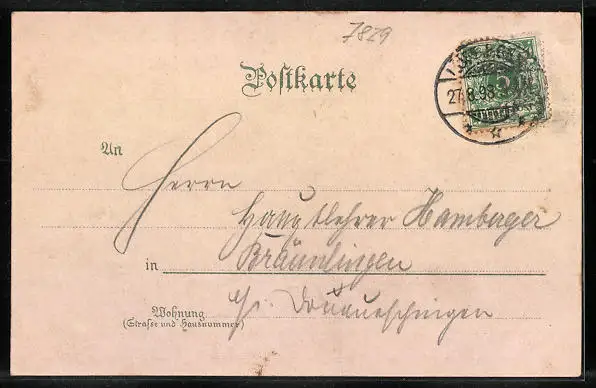 7829
Postkarte
27.8.98
An
Herrn
Hauptlehrer Hamberger
in Bräunlingen
Wohnung
(Straße und Hausnummer)
Donaueschingen